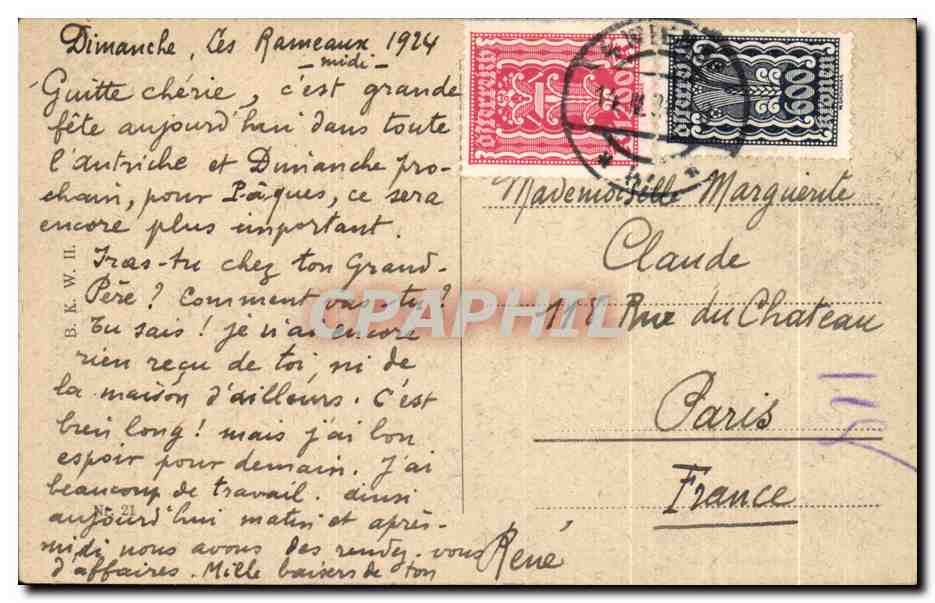 Dimanche, Les Rameaux 1924
- midi -
Guitte chérie, c'est grande
fête aujourd'hui dans toute
l'autriche et Dimanche pro-
chain, pour Pâques, ce sera
encore plus important.
Iras-tu chez ton Grand-
Père? Comment vas-tu?
Tu sais! je n'ai encore
rien reçu de toi, ni de
la maison d'ailleurs. C'est
bien long! mais j'ai bon
espoir pour demain. J'ai
beaucoup de travail. ainsi
aujourd'hui matin et après-
midi nous avons des rendez-vous
d'affaires. Mille baisers de ton
René
B. K. W. II.
No. 21
Österreich
1200
Österreich
600
Mademoiselle Marguerite
Claude
118 Rue du Chateau
Paris
France
CPAPHIL